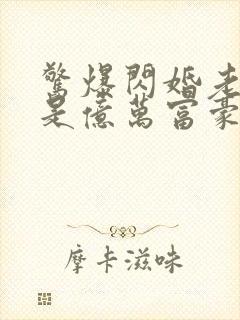 驚爆閃婚老
是億萬富豪
摩卡滋味